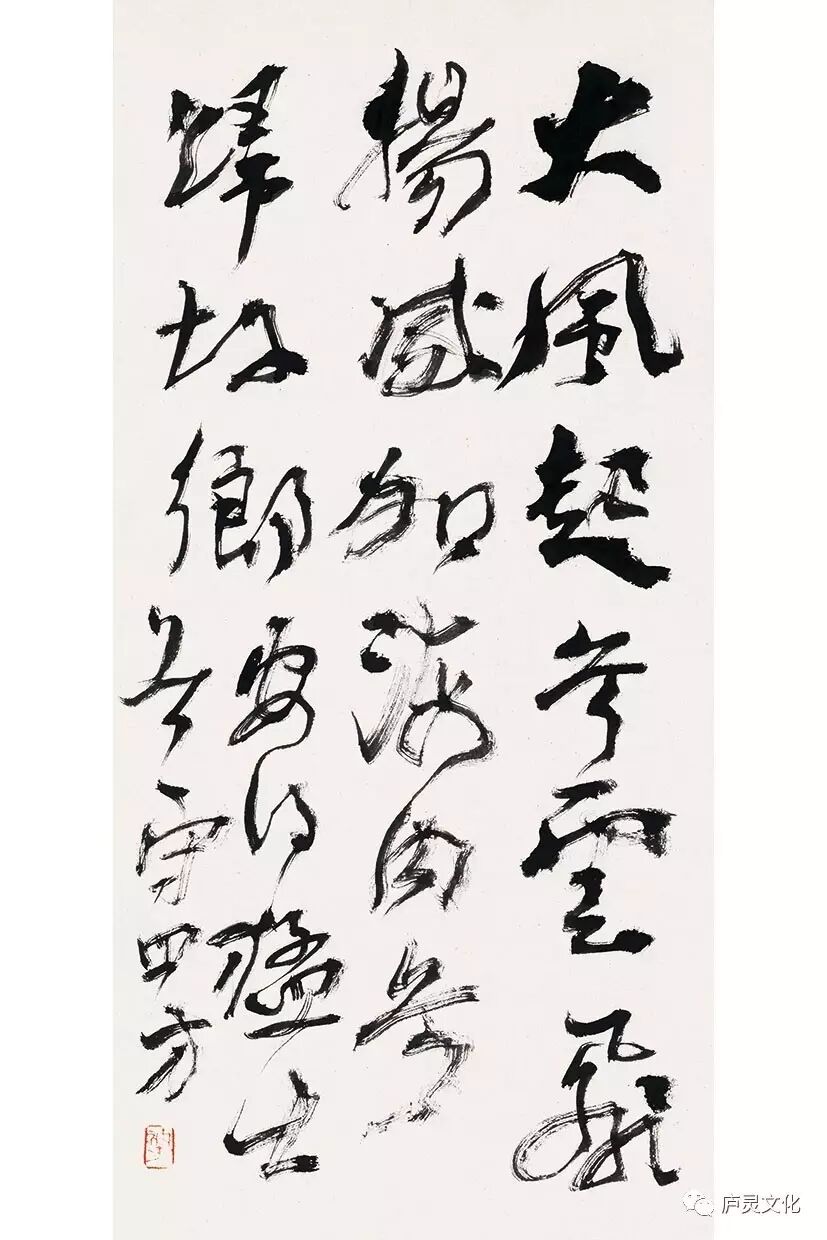 大風起兮雲飛
揚威加海内兮
歸故鄉
安得猛士
兮守四方
庐灵文化